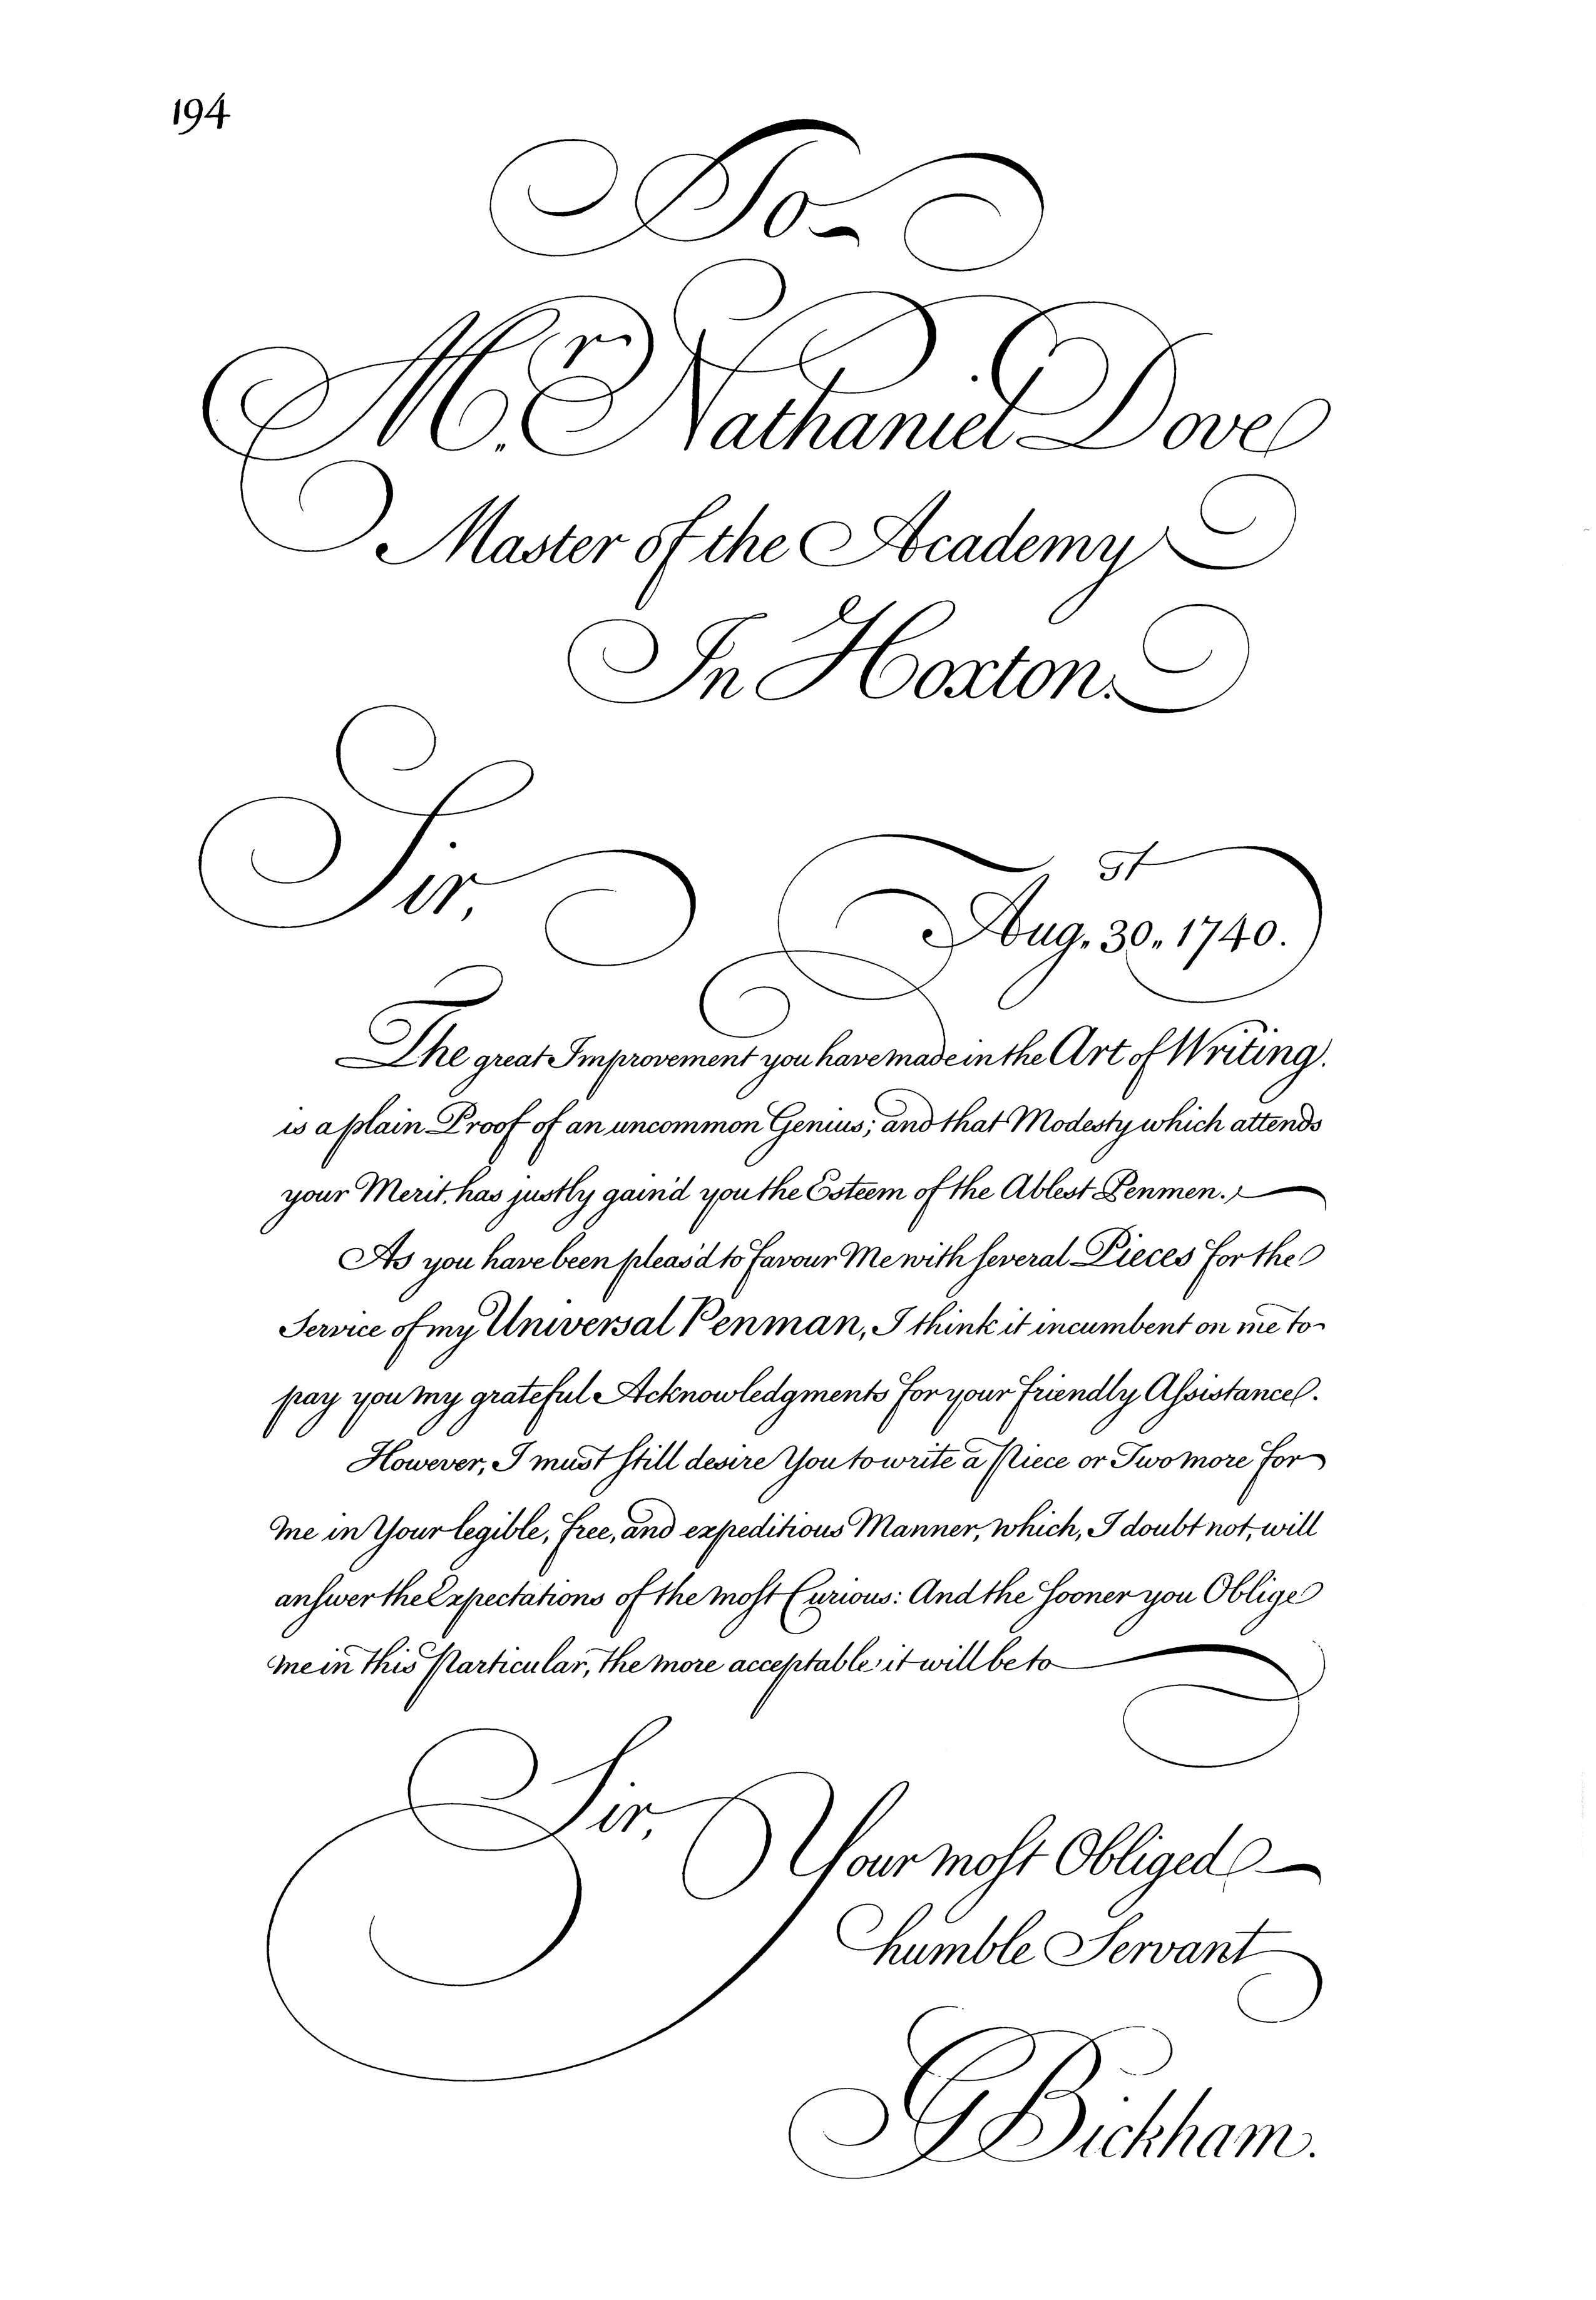 194
To
Mr. Nathaniel Dove
Master of the Academy
In Hoxton.
Sir,
Augst. 30, 1740.
The great Improvement you have made in the Art of Writing.
is a plain Proof of an uncommon Genius; and that Modesty which attends
your Merit, has justly gain'd you the Esteem of the Ablest Penmen.
As you have been pleas'd to favour Me with ſeveral Pieces for the
Service of my Universal Penman, I think it incumbent on me to
pay you my grateful Acknowledgments for your friendly Aſsistance.
However, I must ſtill desire You to write a Piece or Two more for
me in Your legible, free, and expeditious Manner, which, I doubt not, will
anſwer the Expectations of the moſt Curious: And the ſooner you Oblige
me in this Particular, the more acceptable it will be to
Sir,
Your moſt Obliged
humble Servant
G Bickham.